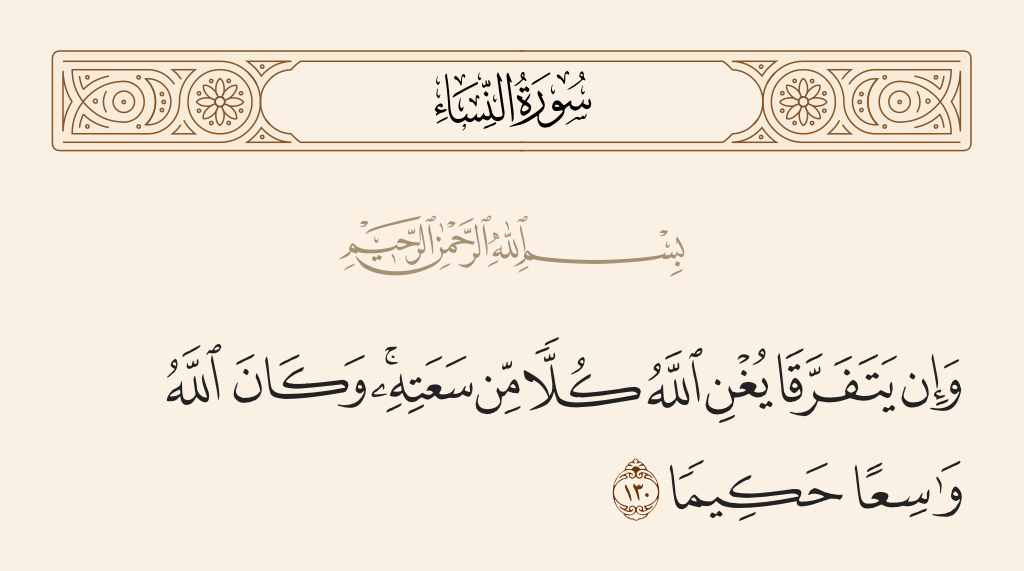 سُورَةُ النِّسَاءِ
بِسْمِ ٱللَّهِ ٱلرَّحْمَٰنِ ٱلرَّحِيمِ
وَإِن يَتَفَرَّقَا يُغْنِ ٱللَّهُ كُلًّا مِّن سَعَتِهِۦ ۚ وَكَانَ ٱللَّهُ
وَٰسِعًا حَكِيمًا ١٣٠